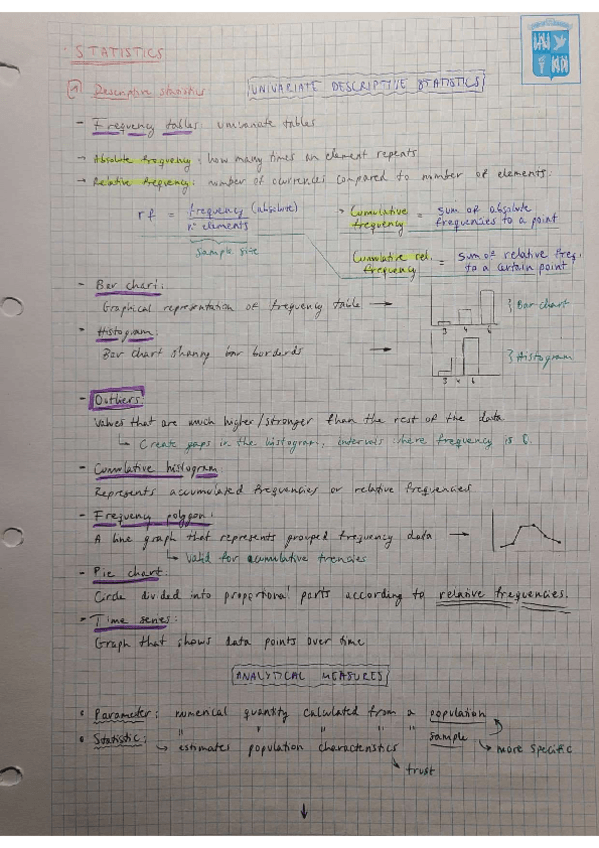 STATISTICS
1 Descriptive statistics
UNIVARIATE DESCRIPTIVE STATISTICS
- Frequency tables: univariate tables
→ Absolute frequency: how many times an element repeats
→ Relative frequency: number of ocurrences compared to number of elements.
rf = frequency (absolute)
nº elements
sample size
> Cumulative frequency = sum of absolute frequencies to a point
Cumulative rel. frequency = sum of relative freq. to a certain point
- Bar chart:
Graphical representation of frequency table →
3 4 6
} Bar chart
- Histogram:
Bar chart sharing bar borders →
3 4 6
} Histogram
- Outliers:
Values that are much higher/stronger than the rest of the data
↳ Create gaps in the histogram, intervals where frequency is 0.
- Cumulative histogram
Represents accumulated frequencies or relative frequencies
- Frequency polygon:
A line graph that represents grouped frequency data →
↳ valid for acumulative
- Pie chart:
Circle divided into proportional parts according to relative frequencies.
- Time series:
Graph that shows data points over time
ANALYTICAL MEASURES
• Parameter: numerical quantity calculated from a population
• Statistic: " " " " sample
↳ estimates population characteristics
↳ more specific
trust
↓